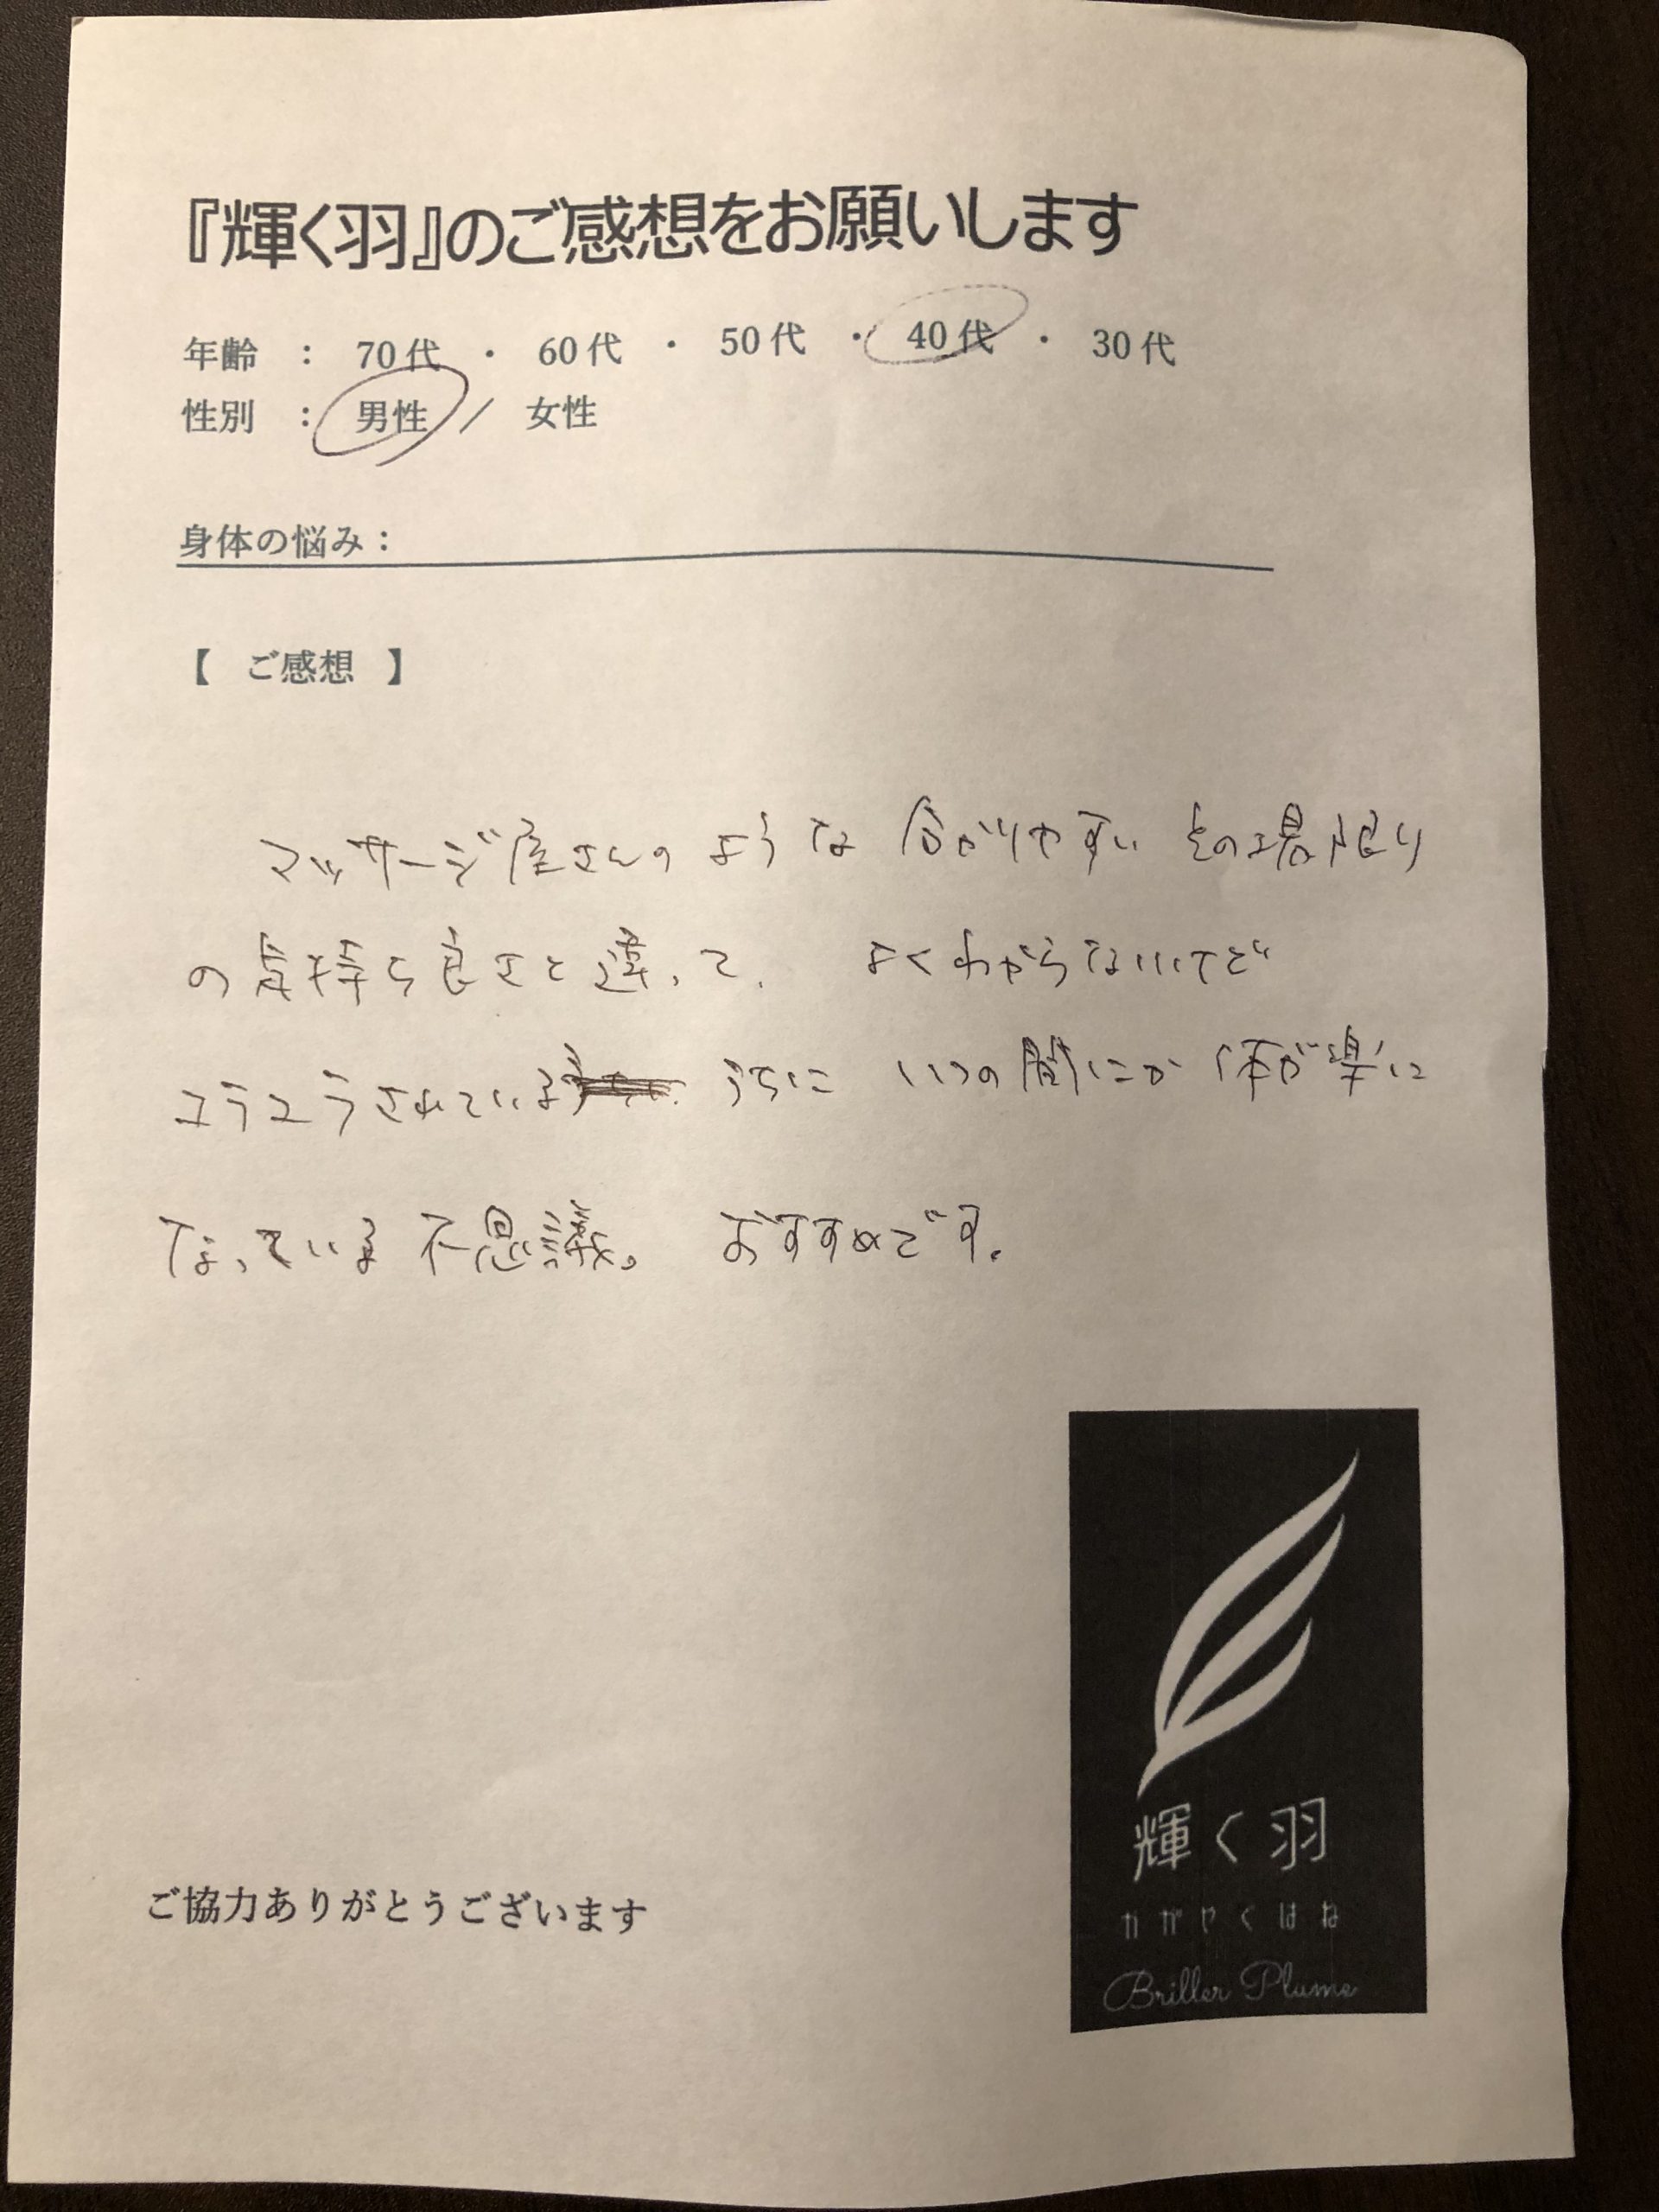 『輝く羽』のご感想をお願いします
年齢 : 70代 ・ 60代 ・ 50代 ・ 40代 ・ 30代
性別 : 男性 / 女性
身体の悩み:
【 ご感想 】
マッサージ屋さんのような分かりやすいその場限り
の気持ち良さと違って、よくわからないけど
ユラユラされている うちに いつの間にか 体が楽に
なっている不思議。 おすすめです。
輝く羽
かがやくはね
Briller Plume
ご協力ありがとうございます